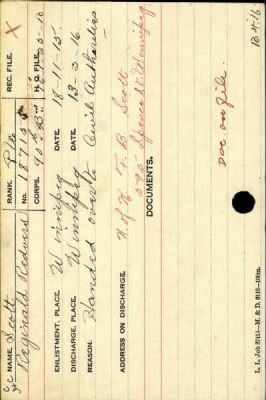 NAME, Scott RANK. Pte REC. FILE. X
Reginald Redvers No. 18713 CORPS. 90th Bn H.Q. FILE.
ENLISTMENT, PLACE. Winnipeg DATE. 18-11-15.
DISCHARGE, PLACE. Winnipeg DATE. 13-3-16
REASON. Handed over to Civil Authorities
ADDRESS ON DISCHARGE. N of K F. B. Scott
595 Spence St. Winnipeg
DOCUMENTS.
Doc. on file.
13-4-16
L. L. Job 87111—M. & D. 6110—100m.